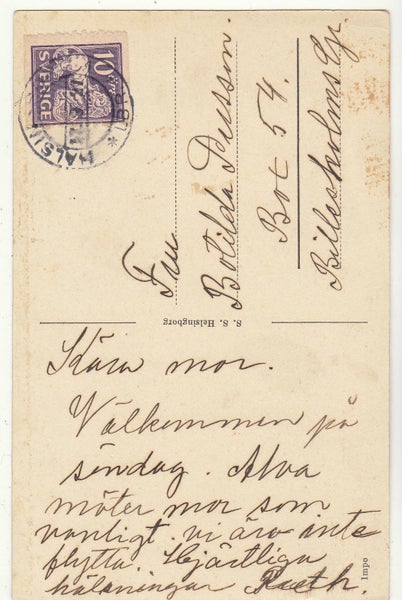 10 ÖRE
SVERIGE
HÄLSI
Fru
Botilda Persson.
Box 54.
Billesholms Gr.
S. S. Helsingborg
Kära mor.
Välkommen på
söndag. Alva
möter mor som
vanligt. vi äro inte
flytta. Hjärtliga
hälsningar Ruth.
Impo